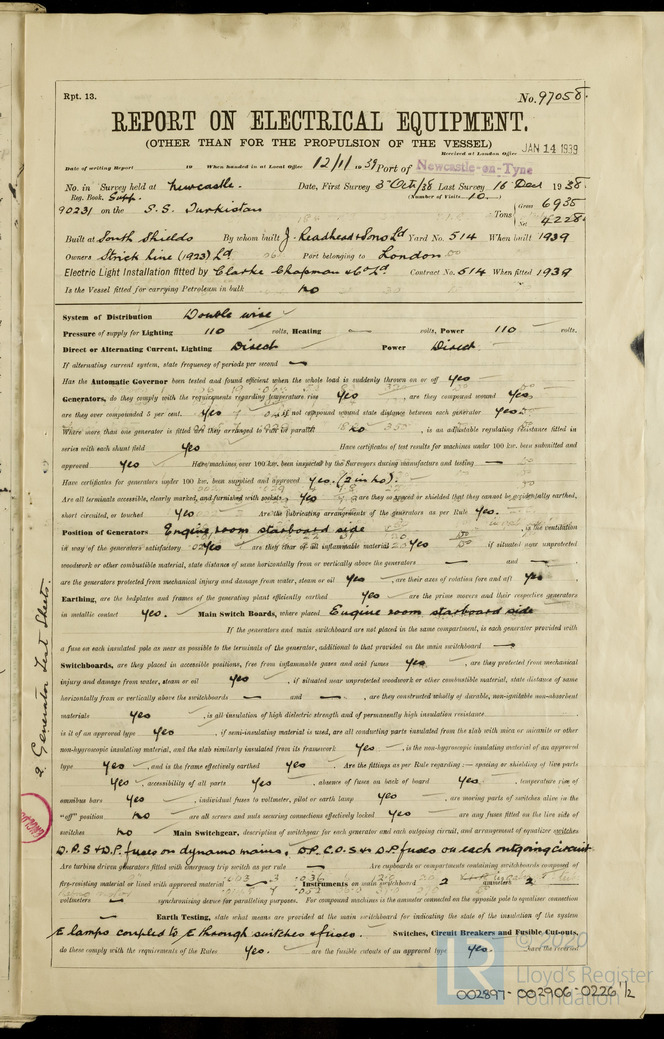 Rpt. 13.
No. 97058.
REPORT ON ELECTRICAL EQUIPMENT.
(OTHER THAN FOR THE PROPULSION OF THE VESSEL)
Received at London Office JAN 14 1939
Date of writing Report 19 When handed in at Local Office 12/1/1939 Port of Newcastle-on-Tyne
No. in Survey held at Newcastle. Date, First Survey 5 Oct/38 Last Survey 16 Dec 1938.
Reg. Book. Supp. (Number of Visits 10.)
90231 on the S.S. Turkistan Tons Gross 6935 Net 4228
Built at South Shields By whom built J. Readhead & Sons Ld Yard No. 514 When built 1939
Owners Strick Line (1923) Ld Port belonging to London
Electric Light Installation fitted by Clarke Chapman & Co Ld Contract No. 514 When fitted 1939
Is the Vessel fitted for carrying Petroleum in bulk no
System of Distribution Double wire
Pressure of supply for Lighting 110 volts, Heating — volts, Power 110 volts.
Direct or Alternating Current, Lighting Direct Power Direct
If alternating current system, state frequency of periods per second —
Has the Automatic Governor been tested and found efficient when the whole load is suddenly thrown on or off Yes
Generators, do they comply with the requirements regarding temperature rise Yes, are they compound wound Yes,
are they over compounded 5 per cent. Yes, if not compound wound state distance between each generator Yes
Where more than one generator is fitted are they arranged to run in parallel no, is an adjustable regulating resistance fitted in
series with each shunt field Yes Have certificates of test results for machines under 100 kw. been submitted and
approved Yes Have machines over 100 kw. been inspected by the Surveyors during manufacture and testing —
Have certificates for generators under 100 kw. been supplied and approved yes. (2 in No).
Are all terminals accessible, clearly marked, and furnished with sockets, Yes are they so spaced or shielded that they cannot be accidentally earthed,
short circuited, or touched Yes Are the lubricating arrangements of the generators as per Rule Yes.
Position of Generators Engine room starboard side, is the ventilation
in way of the generators satisfactory Yes are they clear of all inflammable material Yes if situated near unprotected
woodwork or other combustible material, state distance of same horizontally from or vertically above the generators — and —,
are the generators protected from mechanical injury and damage from water, steam or oil Yes, are their axes of rotation fore and aft Yes
Earthing, are the bedplates and frames of the generating plant efficiently earthed Yes are the prime movers and their respective generators
in metallic contact Yes. Main Switch Boards, where placed Engine room starboard side
If the generators and main switchboard are not placed in the same compartment, is each generator provided with
a fuse on each insulated pole as near as possible to the terminals of the generator, additional to that provided on the main switchboard —
Switchboards, are they placed in accessible positions, free from inflammable gases and acid fumes Yes, are they protected from mechanical
injury and damage from water, steam or oil Yes, if situated near unprotected woodwork or other combustible material, state distance of same
horizontally from or vertically above the switchboards — and —, are they constructed wholly of durable, non-ignitable non-absorbent
materials Yes, is all insulation of high dielectric strength and of permanently high insulation resistance
is it of an approved type Yes, if semi-insulating material is used, are all conducting parts insulated from the slab with mica or micanite or other
non-hygroscopic insulating material, and the slab similarly insulated from its framework Yes, is the non-hygroscopic insulating material of an approved
type Yes, and is the frame effectively earthed Yes. Are the fittings as per Rule regarding:— spacing or shielding of live parts
Yes, accessibility of all parts Yes, absence of fuses on back of board Yes, temperature rise of
omnibus bars Yes, individual fuses to voltmeter, pilot or earth lamp Yes, are moving parts of switches alive in the
"off" position no are all screws and nuts securing connections effectively locked Yes are any fuses fitted on the live side of
switches no Main Switchgear, description of switchgear for each generator and each outgoing circuit, and arrangement of equalizer switches
D.P.S & D.P. fuses on dynamo mains, D.P.C.O.S & D.P. fuses on each outgoing circuit
Are turbine driven generators fitted with emergency trip switch as per rule — Are cupboards or compartments containing switchboards composed of
fire-resisting material or lined with approved material — Instruments on main switchboard 2 ammeters 2
voltmeters — synchronising device for paralleling purposes. For compound machines is the ammeter connected on the opposite pole to equaliser connection
— Earth Testing, state what means are provided at the main switchboard for indicating the state of the insulation of the system
E lamps coupled to E through switches & fuses. Switches, Circuit Breakers and Fusible Cut-outs,
do these comply with the requirements of the Rules Yes. are the fusible cutouts of an approved type Yes.
2 Generator Test Sheets.
© 2020
Lloyd's Register
Foundation
002897-002906-0226 1/2